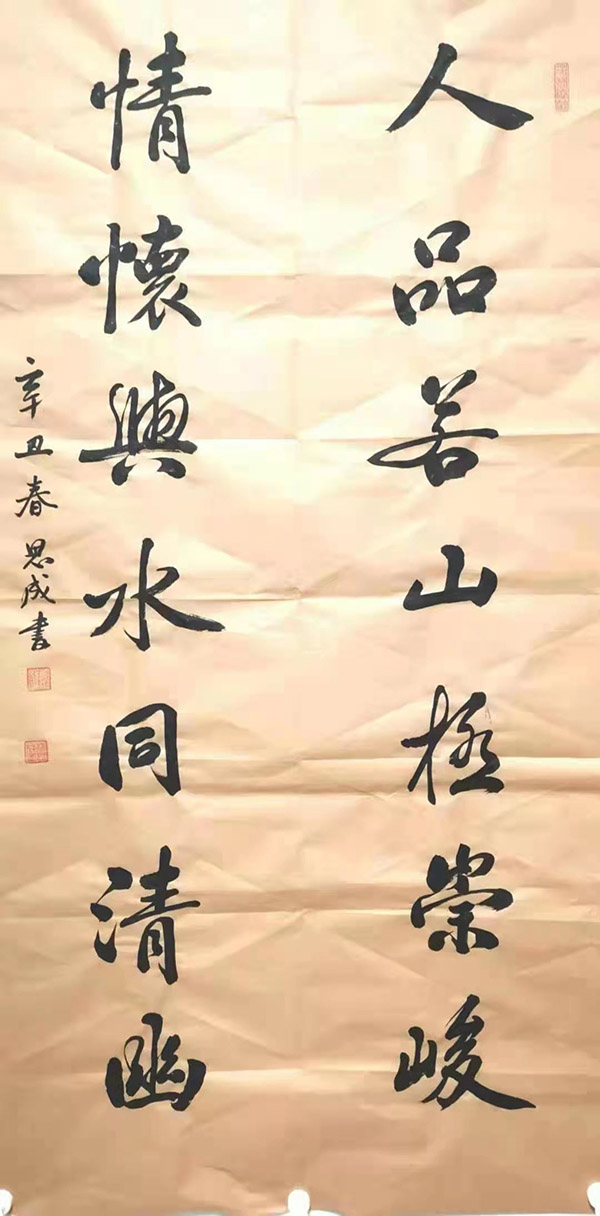 人品若山極崇峻
情懷與水同清幽
辛丑春思成書